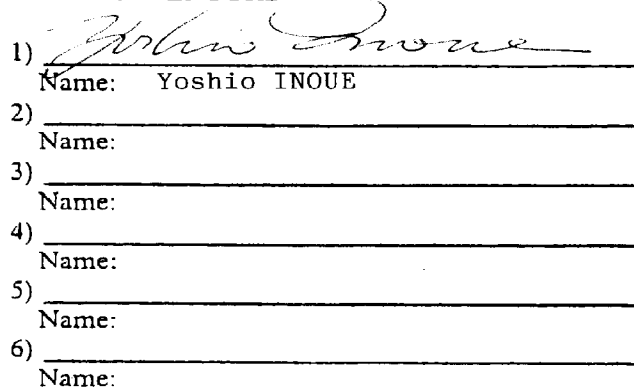 1) Yoshio Inoue
Name: Yoshio INOUE
2)
Name:
3)
Name:
4)
Name:
5)
Name:
6)
Name: